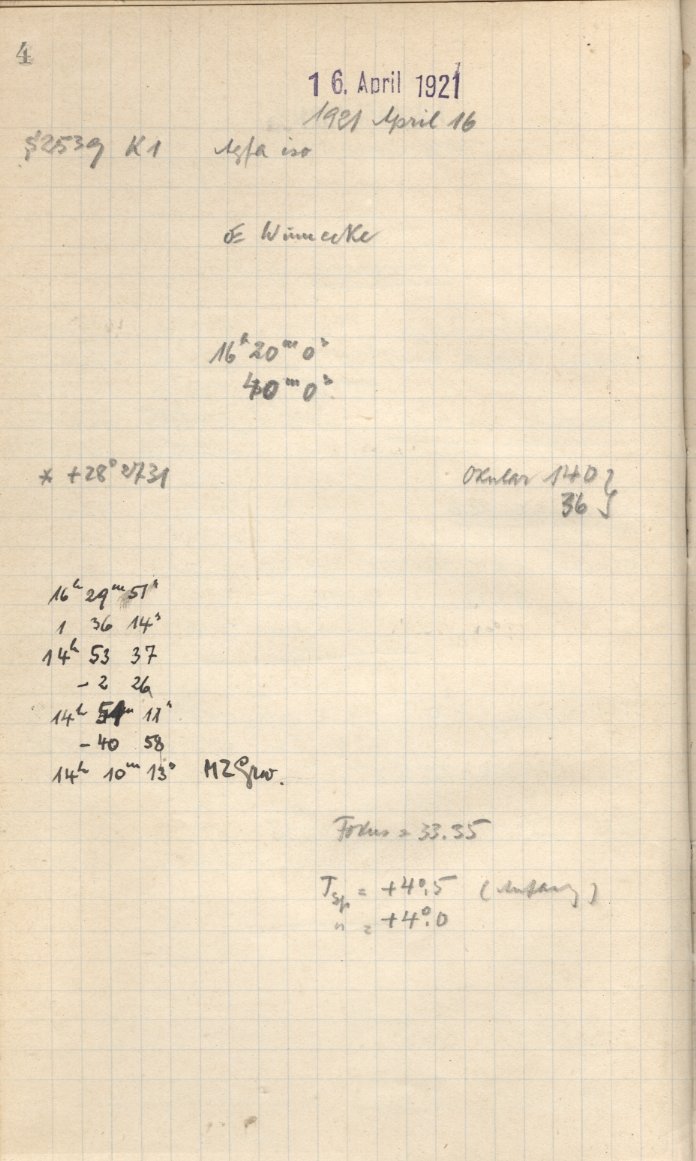 4
16. April 1921
1921 April 16
S2539 K1 Agfa iso
Winnecke
16ʰ 20ᵐ 0ˢ
40ᵐ 0ˢ
* +28° 2731
Okular 140 }
36
16ʰ 29ᵐ 51ˢ
1 36 14ˢ
14ʰ 53 37
- 2 26
14ʰ 51ᵐ 11ˢ
- 40 58
14ʰ 10ᵐ 13ˢ MZGrw.
Fokus = 33.35
T_Sp = +4°.5 (Anfang)
" = +4°.0